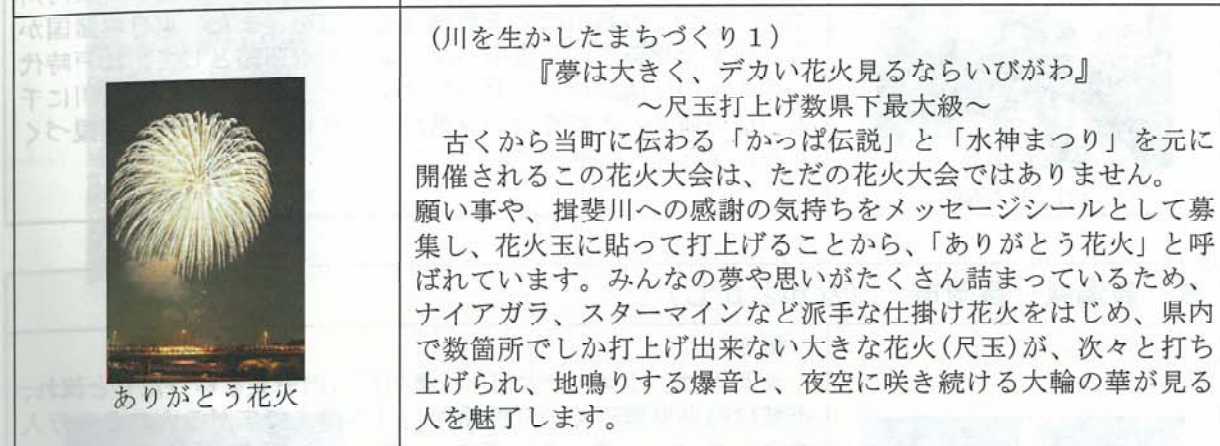 (川を生かしたまちづくり１)
『夢は大きく、デカい花火見るならいびがわ』
～尺玉打上げ数県下最大級～
古くから当町に伝わる「かっぱ伝説」と「水神まつり」を元に
開催されるこの花火大会は、ただの花火大会ではありません。
願い事や、揖斐川への感謝の気持ちをメッセージシールとして募
集し、花火玉に貼って打上げることから、「ありがとう花火」と呼
ばれています。みんなの夢や思いがたくさん詰まっているため、
ナイアガラ、スターマインなど派手な仕掛け花火をはじめ、県内
で数箇所でしか打上げ出来ない大きな花火(尺玉)が、次々と打ち
上げられ、地鳴りする爆音と、夜空に咲き続ける大輪の華が見る
人を魅了します。
ありがとう花火